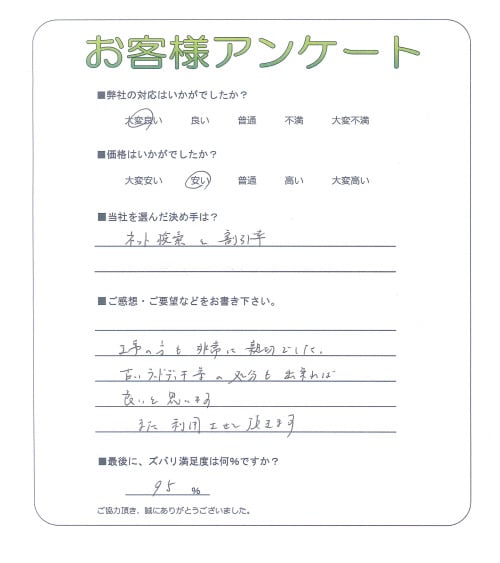 お客様アンケート
■弊社の対応はいかがでしたか？
大変良い 良い 普通 不満 大変不満
■価格はいかがでしたか？
大変安い 安い 普通 高い 大変高い
■当社を選んだ決め手は？
ネット検索と割引率
■ご感想・ご要望などをお書き下さい。
工事の方も非常に親切でした。
古い の処分も出来れば
良いと思います
また利用させて頂きます
■最後に、ズバリ満足度は何%ですか？
95 %
ご協力頂き、誠にありがとうございました。